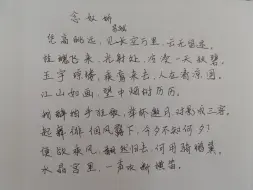 念奴娇
苏轼
凭高眺远，见长空万里，云无留迹。
桂魄飞来，光射处，冷浸一天秋碧。
玉宇琼楼，乘鸾来去，人在清凉国。
江山如画，望中烟树历历。
我醉拍手狂歌，举杯邀月，对影成三客。
起舞徘徊风露下，今夕不知何夕？
便欲乘风，翻然归去，何用骑鹏翼。
水晶宫里，一声吹断横笛。